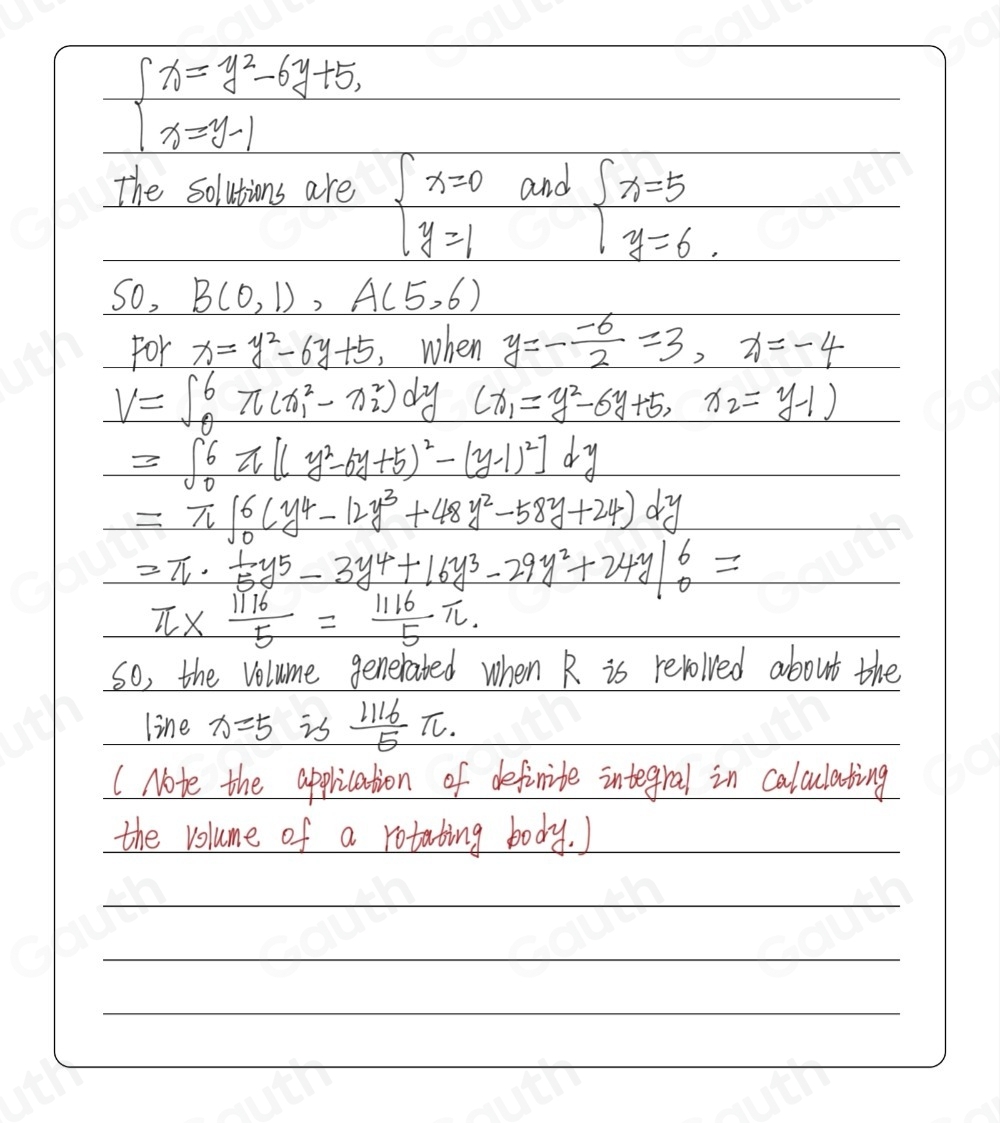 {x=y²-6y+5,
x=y-1
The solutions are {x=0 y=1 and {x=5 y=6.
SO, B(0,1), A(5,6)
For x=y²-6y+5, when y=-\frac{-6}{2}=3, x=-4
V=∫₀⁶ π(x₁²-x₂²)dy (x₁=y²-6y+5, x₂=y-1)
=∫₀⁶ π[(y²-6y+5)²-(y-1)²]dy
=π∫₀⁶(y⁴-12y³+48y²-58y+24)dy
=π·\frac{1}{5}y⁵-3y⁴+16y³-29y²+24y|₀⁶=
π×\frac{1116}{5}=\frac{1116}{5}π.
SO, the volume generated when R is revolved about the
line x=5 is \frac{1116}{5}π.
(Note the application of definite integral in calculating
the volume of a rotating body.)